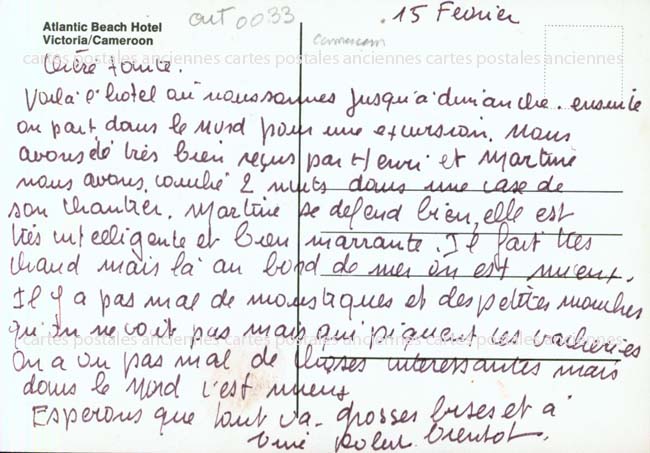 Atlantic Beach Hotel
Victoria/Cameroon
out 0033
Cameroun
15 Fevrier
cartes postales anciennes cartes postales anciennes cartes postales anciennes
chère tante.
Voilà l'hotel où nous sommes jusqu'à dimanche. ensuite
on part dans le Nord pour une excursion. Nous
avons été très bien reçus par Henri et Martine
nous avons couché 2 nuits dans une case de
son chantier. Martine se defend bien, elle est
très intelligente et bien marrante. Il fait très
chaud mais là au bord de mer on est mieux.
Il y a pas mal de moustiques et des petites mouches
qu'on ne voit pas mais qui piquent les
cartes postales anciennes cartes postales anciennes cartes postales anciennes
on a vu pas mal de choses interessantes mais
dans le Nord c'est mieux
Esperons que tout va. grosses bises et à
bientot.